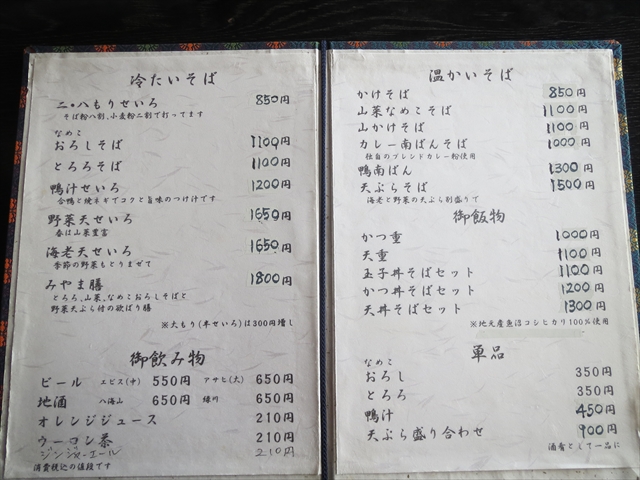 冷たいそば
二・八もりせいろ 850円
そば粉八割、小麦粉二割で打ってます
なめこ
おろしそば 1100円
とろろそば 1100円
鴨汁せいろ 1200円
合鴨と焼ネギでコクと旨味のつけ汁です
野菜天せいろ 1650円
春は山菜豊富
海老天せいろ 1650円
季節の野菜もとりまぜて
みやま膳 1800円
とろろ、山菜、なめこおろしそばと
野菜天ぷら付の欲ばり膳
※大もり(半せいろ)は300円増し
御飲み物
ビール エビス(中) 550円 アサヒ(大) 650円
地酒 八海山 650円 緑川 650円
オレンジジュース 210円
ウーロン茶 210円
ジンジャーエール 210円
消費税込の値段です
温かいそば
かけそば 850円
山菜なめこそば 1100円
山かけそば 1100円
カレー南ばんそば 1000円
独自のブレンドカレー粉使用
鴨南ばん 1300円
天ぷらそば 1500円
海老と野菜の天ぷら別盛りで
御飯物
かつ重 1000円
天重 1100円
玉子丼そばセット 1100円
かつ丼そばセット 1200円
天丼そばセット 1300円
※地元産魚沼コシヒカリ100%使用
単品
なめこ
おろし 350円
とろろ 350円
鴨汁 450円
天ぷら盛り合わせ 900円
酒肴として一品に